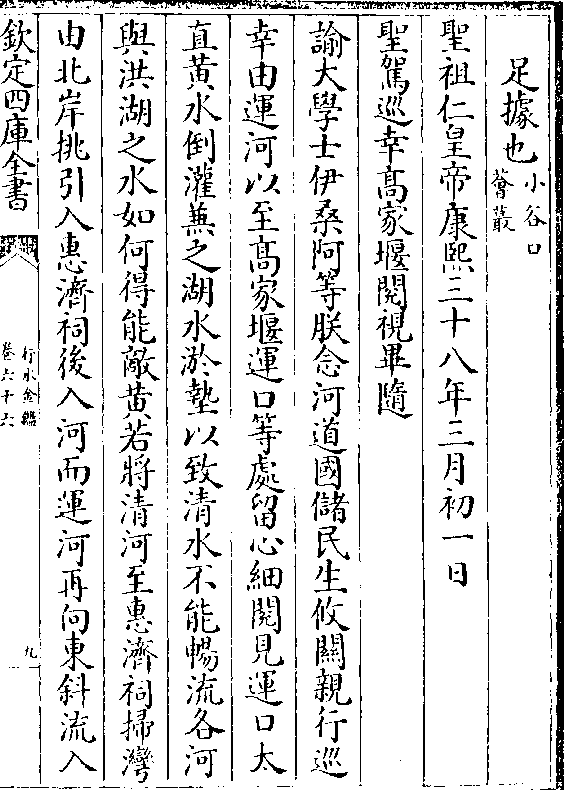 足據也小谷口薈蕞
聖祖仁皇帝康熙三十八年三月初一日
聖駕巡幸髙家堰閱視畢隨
諭大學士伊桑阿等朕念河道國儲民生攸關親行巡
幸由運河以至髙家堰運口等處留心細閱見運口太
直黄水倒灌兼之湖水淤墊以致清水不能暢流各河
與洪湖之水如何得能敵黄若將清河至惠濟祠掃灣
由北岸挑引入惠濟祠後入河而運河再向東斜流入
欽定四庫全書
行水金鑑
卷六十六
九